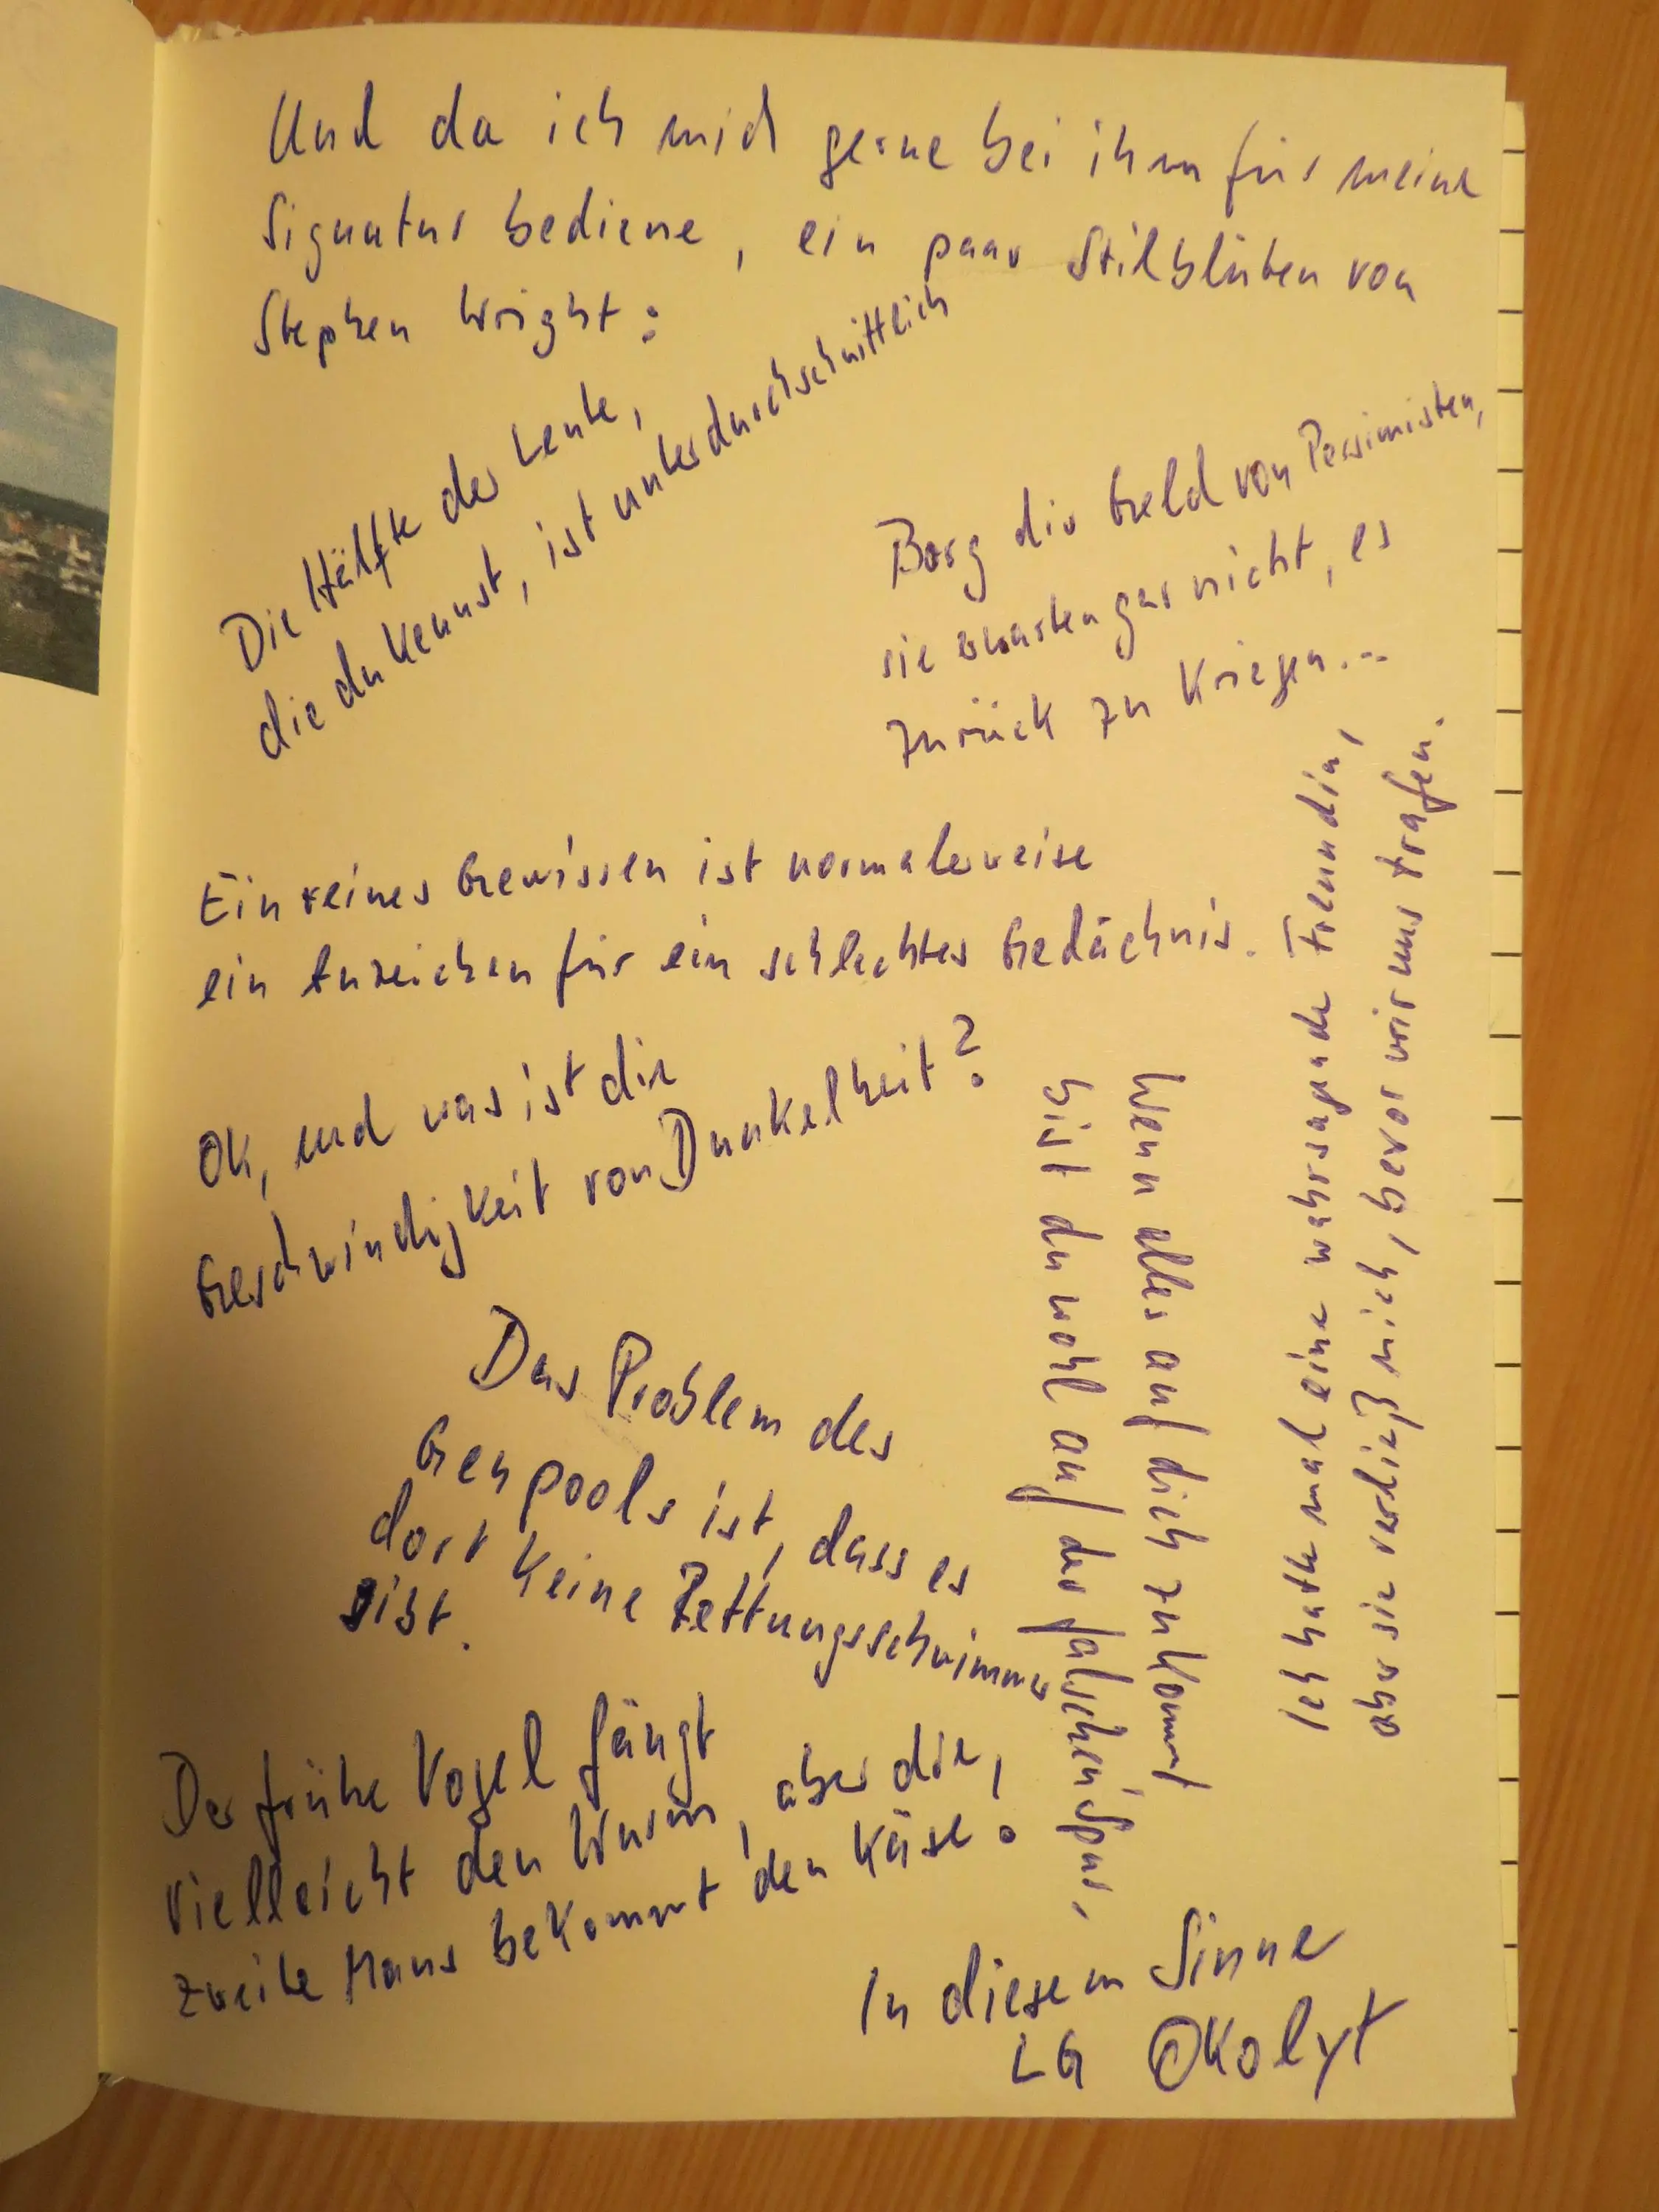 Und da ich mich gerne bei ihm für meine
Signatur bediene, ein paar Stilblüten von
Stephen Wright:
Die Hälfte der Leute,
die du kennst, ist unterdurchschnittlich
Borg dir Geld von Pessimisten,
sie erwarten gar nicht, es
zurück zu kriegen...
Ein reines Gewissen ist normalerweise
ein Anzeichen für ein schlechtes Gedächnis.
OK, und was ist die
Geschwindigkeit von Dunkelheit?
Wenn alles auf dich zukommt
bist du wohl auf der falschen Spur,
Ich hatte mal eine wahrsagende Freundin,
aber sie verließ mich, bevor wir uns trafen.
Das Problem des
Genpools ist, dass es
dort keine Rettungsschwimmer
gibt.
Der frühe Vogel fängt
vielleicht den Wurm, aber die,
zweite Maus bekommt den Käse!
In diesem Sinne
LG Okolyt